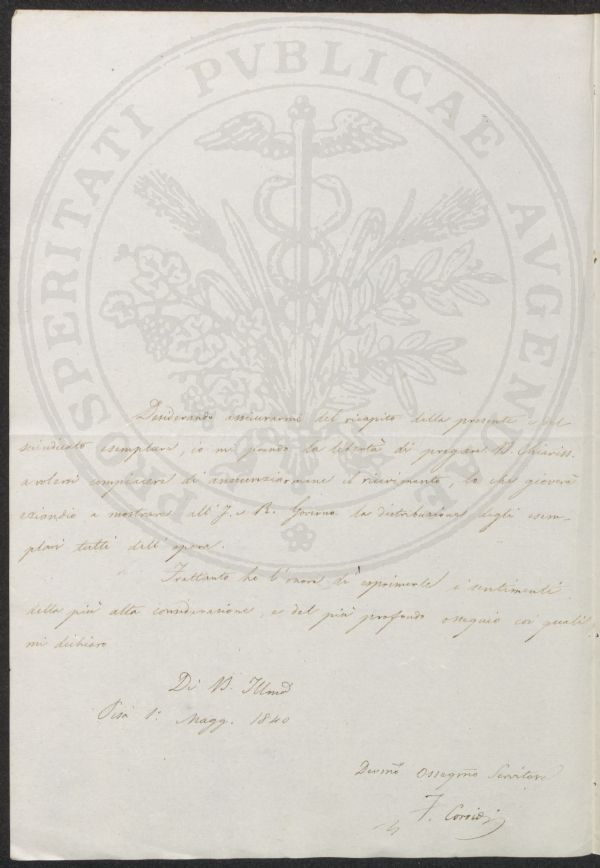 PROSPERITATI PVBLICAE AVGENDAE
Desiderando assicurarmi del ricapito della presente e del
suindicato esemplare, io mi prendo la libertà di pregare V. Chiariss.
a volersi compiacere di annunziarmene il ricevimento, lo che gioverà
eziandio a mostrare all' I. e R. Governo la distribuzione degli esem-
plari tutti dell' opera.
Frattanto ho l'onore di esprimerle i sentimenti
della più alta considerazione, e del più profondo ossequio coi quali
mi dichiaro
Di V. Illma
Pisa 1: Magg. 1840
Devmo Ossequmo Servitore
F. Corridi